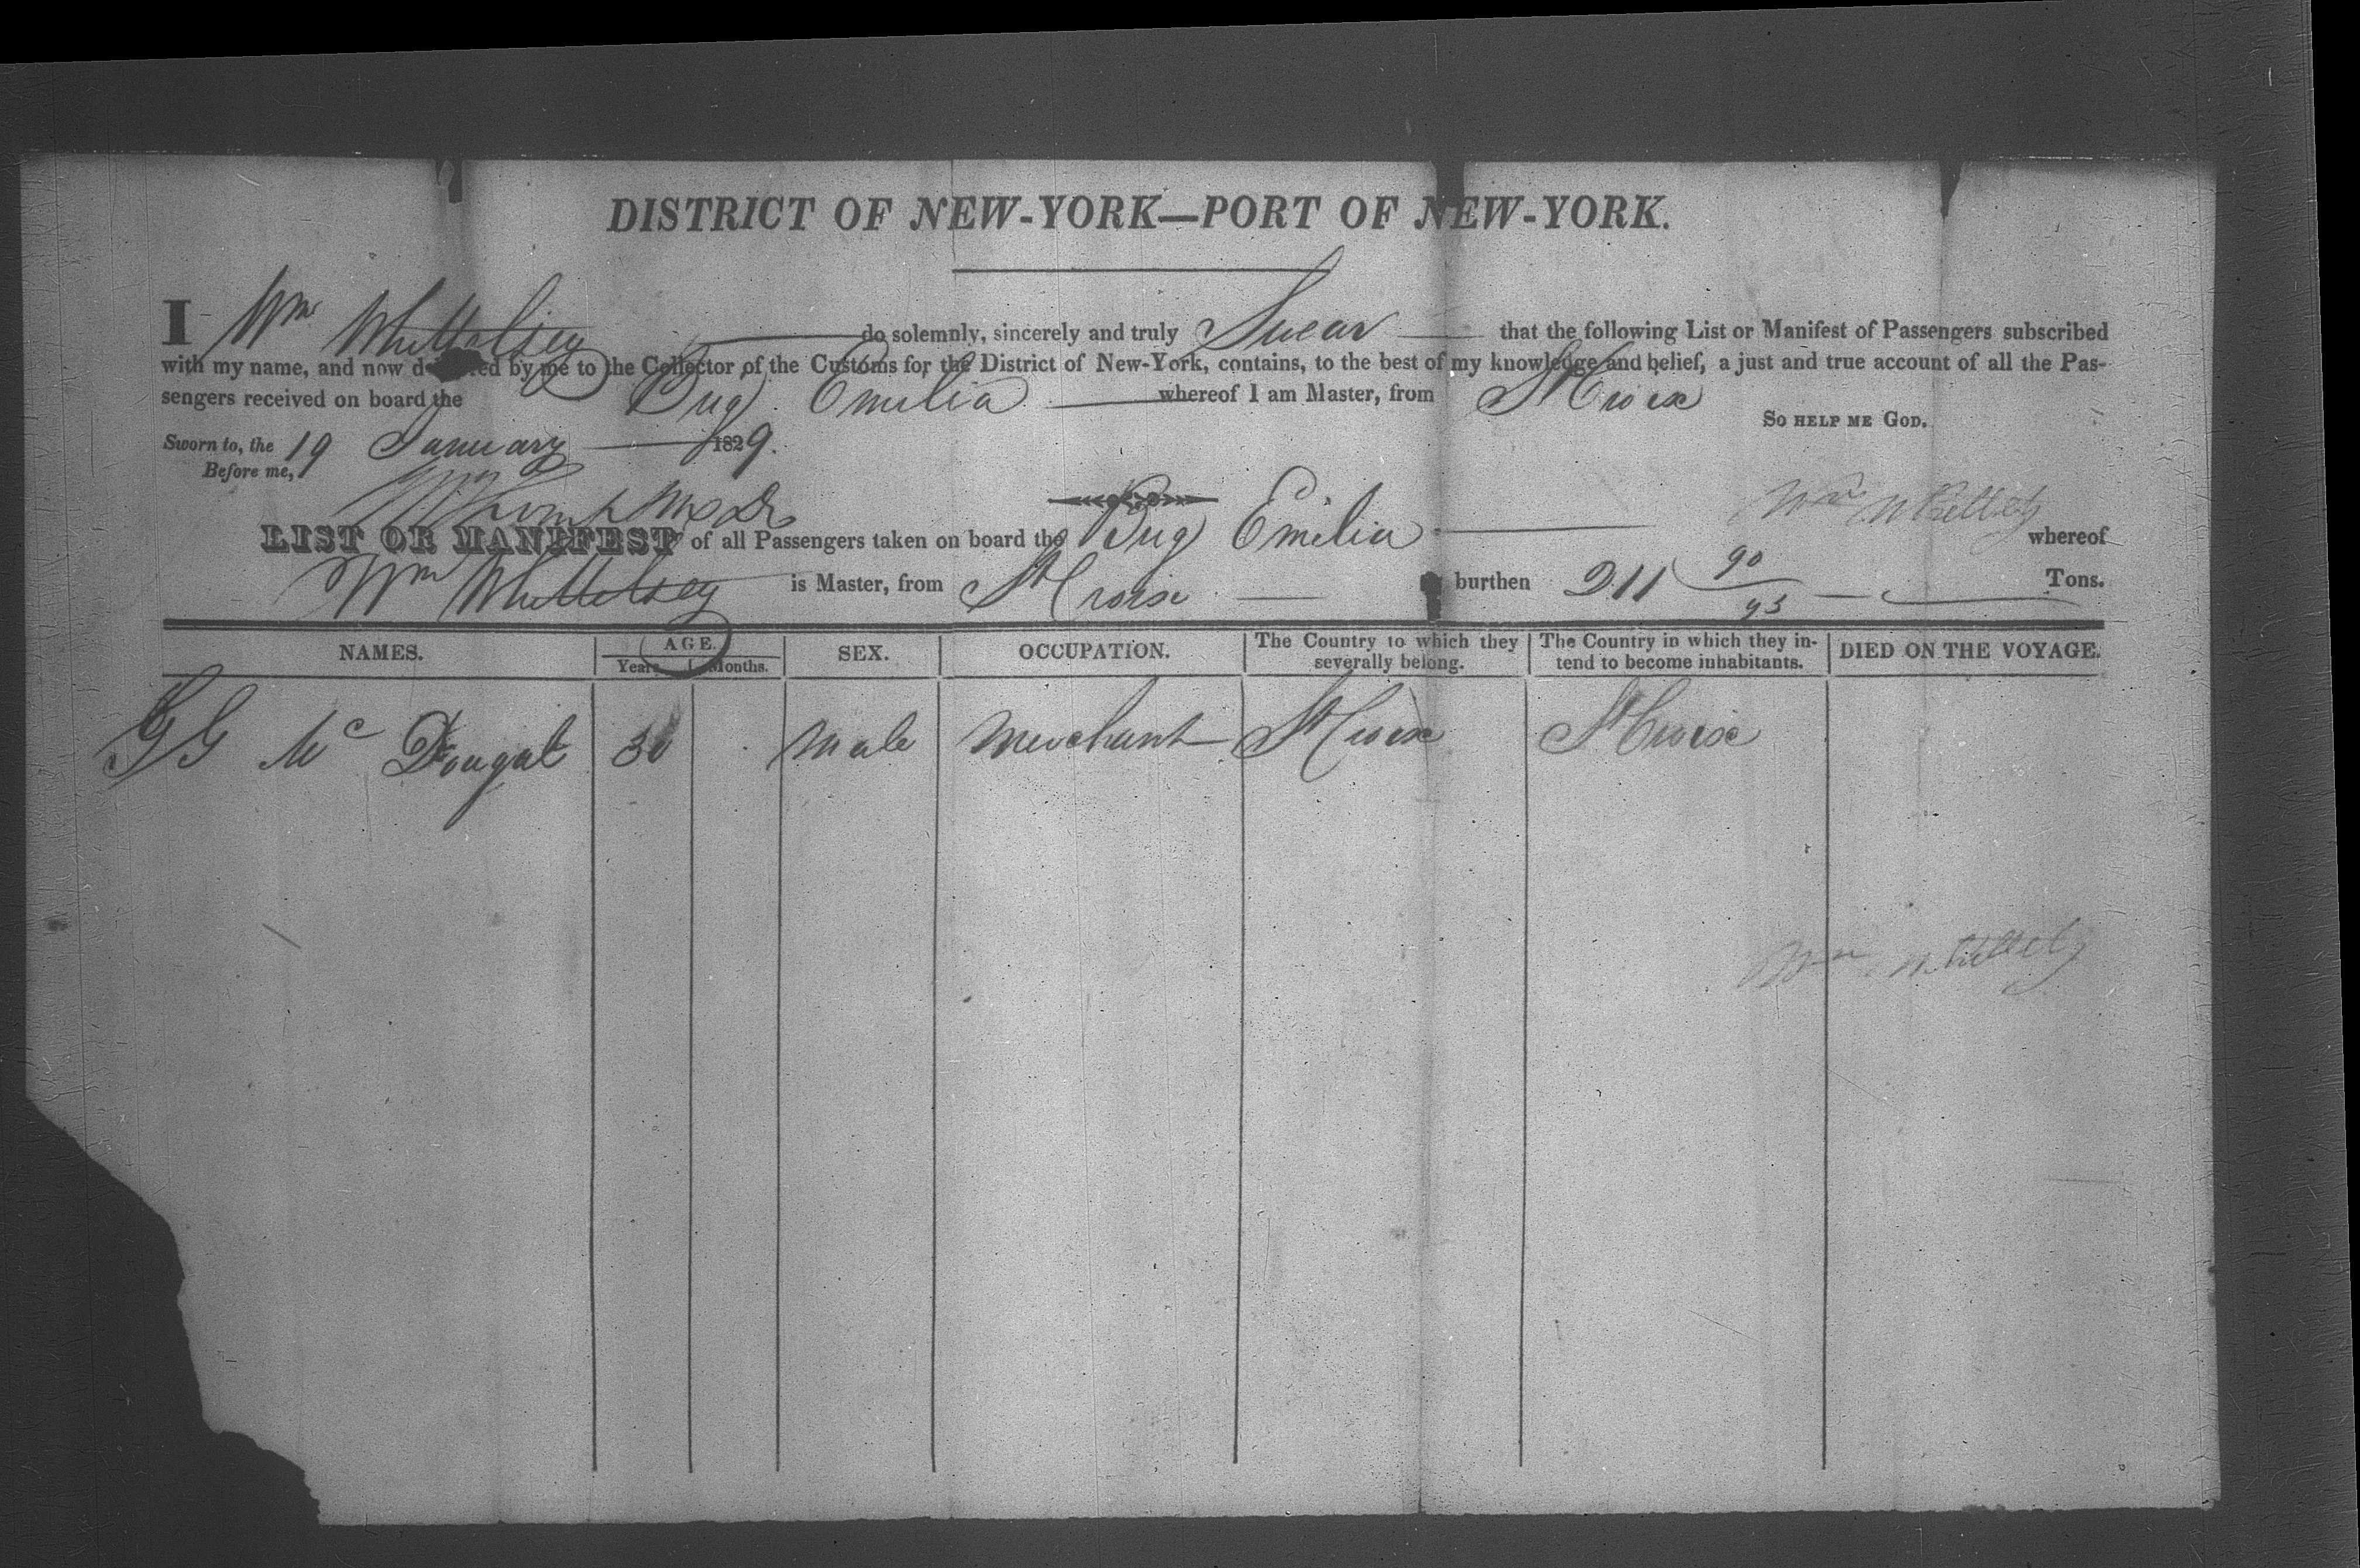 DISTRICT OF NEW-YORK—PORT OF NEW-YORK.
I Wm Whittelsey do solemnly, sincerely and truly Swear that the following List or Manifest of Passengers subscribed
with my name, and now delivered by me to the Collector of the Customs for the District of New-York, contains, to the best of my knowledge and belief, a just and true account of all the Pas-
sengers received on board the Brig Emilia whereof I am Master, from St Croix
So HELP ME GOD.
Sworn to, the 19 January 1829.
Before me,
Wm Whittelsey
LIST OR MANIFEST of all Passengers taken on board the Brig Emilia whereof
Wm Whittelsey is Master, from St Croix burthen 211 90/95 Tons.
NAMES. AGE. SEX. OCCUPATION. The Country to which they severally belong. The Country in which they in-tend to become inhabitants. DIED ON THE VOYAGE.
Years Months.
G G Mc Dougal 30 Male Merchant St Croix St Croix
Wm Whittelsey